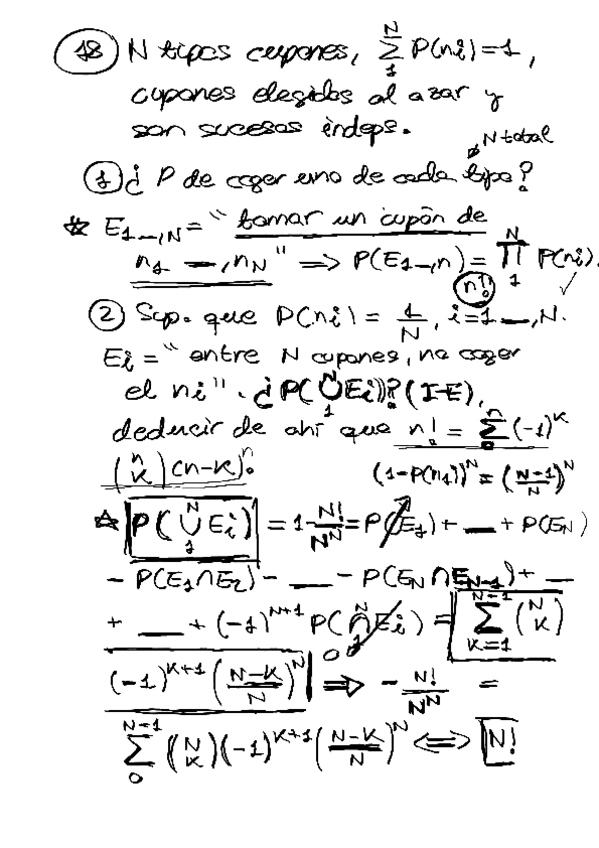 18) N tipos cupones, \sum_{1}^{N} P(ni)=1,
cupones elegidos al azar y
son sucesos indeps.
N total
1) ¿ P de coger uno de cada tipo?
☆ E_{1—,N} = " tomar un cupón de
n_1 —, n_N " => P(E_{1—,n}) = \prod_{1}^{N} P(ni).
n!! ✓
2) Sup. que P(ni) = \frac{1}{N}, i=1—,N.
Ei = " entre N cupones, no coger
el ni". ¿P(\bigcup_{1}^{N} Ei)? (I-E),
deducir de ahí que n! = \sum_{0}^{n} (-1)^K
\binom{n}{K} (n-K)^n. (1-P(n_1))^N = (\frac{N-1}{N})^N
☆ P(\bigcup_{1}^{N} Ei) = 1-\frac{N!}{N^N} = P(E_1) + — + P(E_N)
- P(E_1∩E_2) - — - P(E_N ∩ E_{N-1}) + —
+ — + (-1)^{N+1} P(\bigcap_{1}^{N} Ei) = \sum_{K=1}^{N-1} \binom{N}{K}
0
(-1)^{K+1} (\frac{N-K}{N})^N => - \frac{N!}{N^N} =
\sum_{0}^{N-1} \binom{N}{K} (-1)^{K+1} (\frac{N-K}{N})^N <=> N!